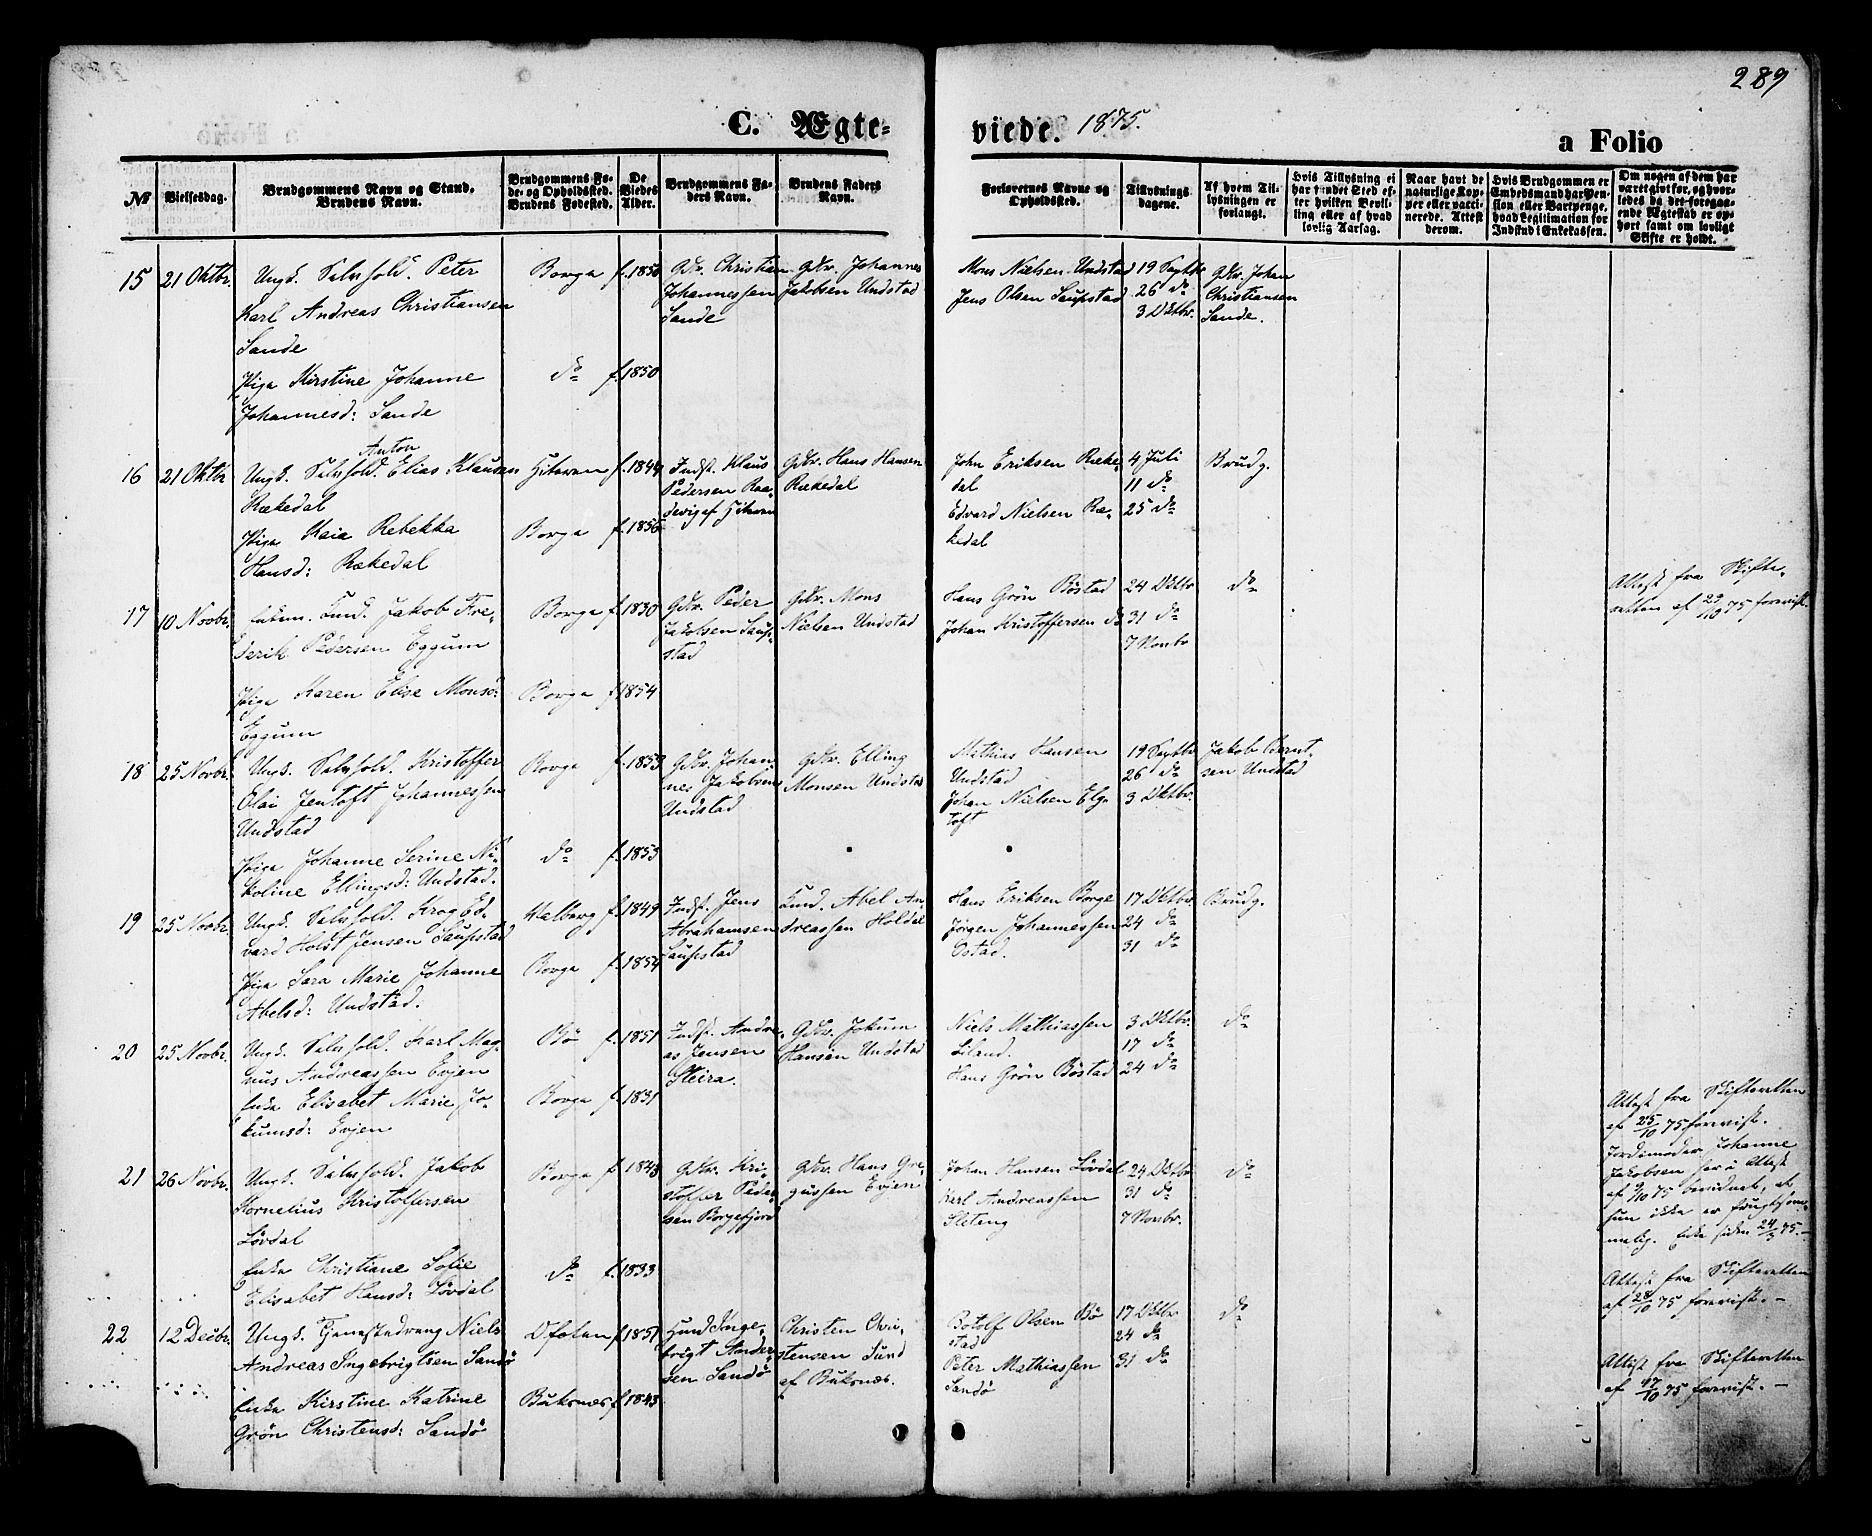 289
C. Ægte-
viede. 1875.
a Folio
№
Vielsesdag.
Brudgommens Navn og Stand.
Brudens Navn.
Brudgommens Fø-
de- og Opholdssted.
Brudens Fødested.
De
Viedes
Alder.
Brudgommens Fa-
ders Navn.
Brudens Faders
Navn.
Forlovernes Navne og
Opholdssted.
Tillysnings
dagene.
Af hvem Til-
lysningen er
forlangt.
Hvis Tillysning ei
har fundet Sted ef-
ter hvilken Bevil-
ling eller af hvad
lovlig Aarsag.
Naar havt de
naturlige Kop-
per eller vacci-
nerede. Attest
derom.
Hvis Brudgommen er
Embedsmand har Pen-
sion eller Vartpenge,
hvad Legitimation for
Indskud i Enkekassen.
Om nogen af dem har
været gift før, og hvor-
ledes da det foregaa-
ende Ægteskab er op-
hørt samt om lovligt
Skifte er holdt.
15
21 Oktbr.
Ungk. Selvfold. Peter
Karl Andreas Christiansen
Sande
Pige Kirstine Johanne
Johannesd: Sande
Borge
do
f. 1850
f. 1850
Gdbr. Christian
Johannessen
Sande
Gdbr. Johannes
Jakobsen Undstad
Mons Nielsen Undstad
Jens Olsen Saupstad
19 Septbr
26 do
3 Oktbr.
Gdbr. Johan
Christiansen
Sande.
16
21 Oktbr
Anton
Ungk. Selvfold. Elias Klausen
Rækedal
Pige Kaia Rebekka
Hansd: Rækedal
Hiteren
Borge
f. 1844
f. 1856
Indst. Klaus
Pedersen
af Hitern
Gdbr. Hans Hansen
Rækedal
John Eriksen Ræke-
dal
Edvard Nielsen Ræ-
kedal
4 Juli
11 do
25 do
Brudg.
17
10 Novbr.
Enkem. Husmd. Jakob Fre-
derik Pedersen Eggum
Pige Karen Elise Monsd:
Eggum
Borge
Borge
f. 1830
f. 1854
Gdbr. Peder
Jakobsen Saup-
stad
Gdbr. Mons
Nielsen Undstad
Hans Grön Böstad
Johan Kristoffersen do
24 Oktbr
31 do
7 Novbr
do
Attest fra Skifte-
retten af 29/10 75 forevist.
18
25 Novbr.
Ungk. Selvfold. Kristoffer
Elai Jentoft Johannessen
Undstad
Pige Johanne Serine Ni-
koline Ellingsd: Undstad.
Borge
do
f. 1853
f. 1853
Gdbr. Johan-
nes Jakobsen
Undstad
Gdbr. Elling
Monsen Undstad
Mathias Hansen
Undstad
Johan Nielsen Elg-
toft
19 Septbr
26 do
3 Oktbr.
Jakob Bernt-
sen Undstad
19
25 Novbr.
Ungk. Selvfold. Krog Ed-
vard Holst Jensen Saupstad
Pige Sara Marie Johanne
Abelsd: Undstad.
Valberg
Borge
f. 1849
f. 1854
Indst. Jens
Abrahamsen
Saupstad
Husmd. Abel An-
dreassen Holdal
Hans Eriksen Borge
Jörgen Johannessen
Ostad.
17 Oktbr
24 do
31 do
Brudg.
20
25 Novbr.
Ungk. Selvfold. Karl Mag-
nus Andreassen Evjen
Enke Elisabet Marie Jo-
kumsd: Evjen
Bö
Borge
f. 1851
f. 1831
Indst. Andre-
as Jensen
Steira.
Gdbr. Jokum
Hansen Undstad
Niels Mathiassen
Liland.
Hans Grön Böstad
3 Oktbr.
17 do
24 do
do
Attest fra Skifteretten
af 25/10 75 forevist.
Jordemoder Johanne
Jakobsen har i Attest
af 9/10 75 bevidnet, at
hun ikke er frugtsom-
melig. Enke siden 24/3 75.-
21
26 Novbr.
Ungk. Selvfold. Jakob
Kornelius Kristoffersen
Lövdal
Enke Christiane Sofie
Elisabet Hansd: Lövdal
Borge
do
f. 1848
f. 1833
Gdbr. Kri-
stoffer Peder-
sen Borgefjord
Gdbr. Hans Gre-
gussen Evjen
Johan Hansen Lövdal
Karl Andreassen
Sleteng
24 Oktbr
31 do
7 Novbr.
do
Attest fra Skifteretten
af 28/10 75 forevist.-
22
12 Decbr.
Ungk. Tjenestedreng Niels
Andreas Ingebrigtsen Sandö
Enke Kirstine Katrine
Grön Christensd: Sandö
Ofoten
Buksnæs
f. 1851
f. 1843
Husmd Inge-
brigt Ander-
sen Sandö
Christen Chri-
stensen Sund
af Buksnæs.
Botolf Olsen Bö-
stad
Peter Mathiassen
Sandö
17 Oktbr
24 do
31 do
do
Attest fra Skifteretten
af 17/10 75 forevist.-